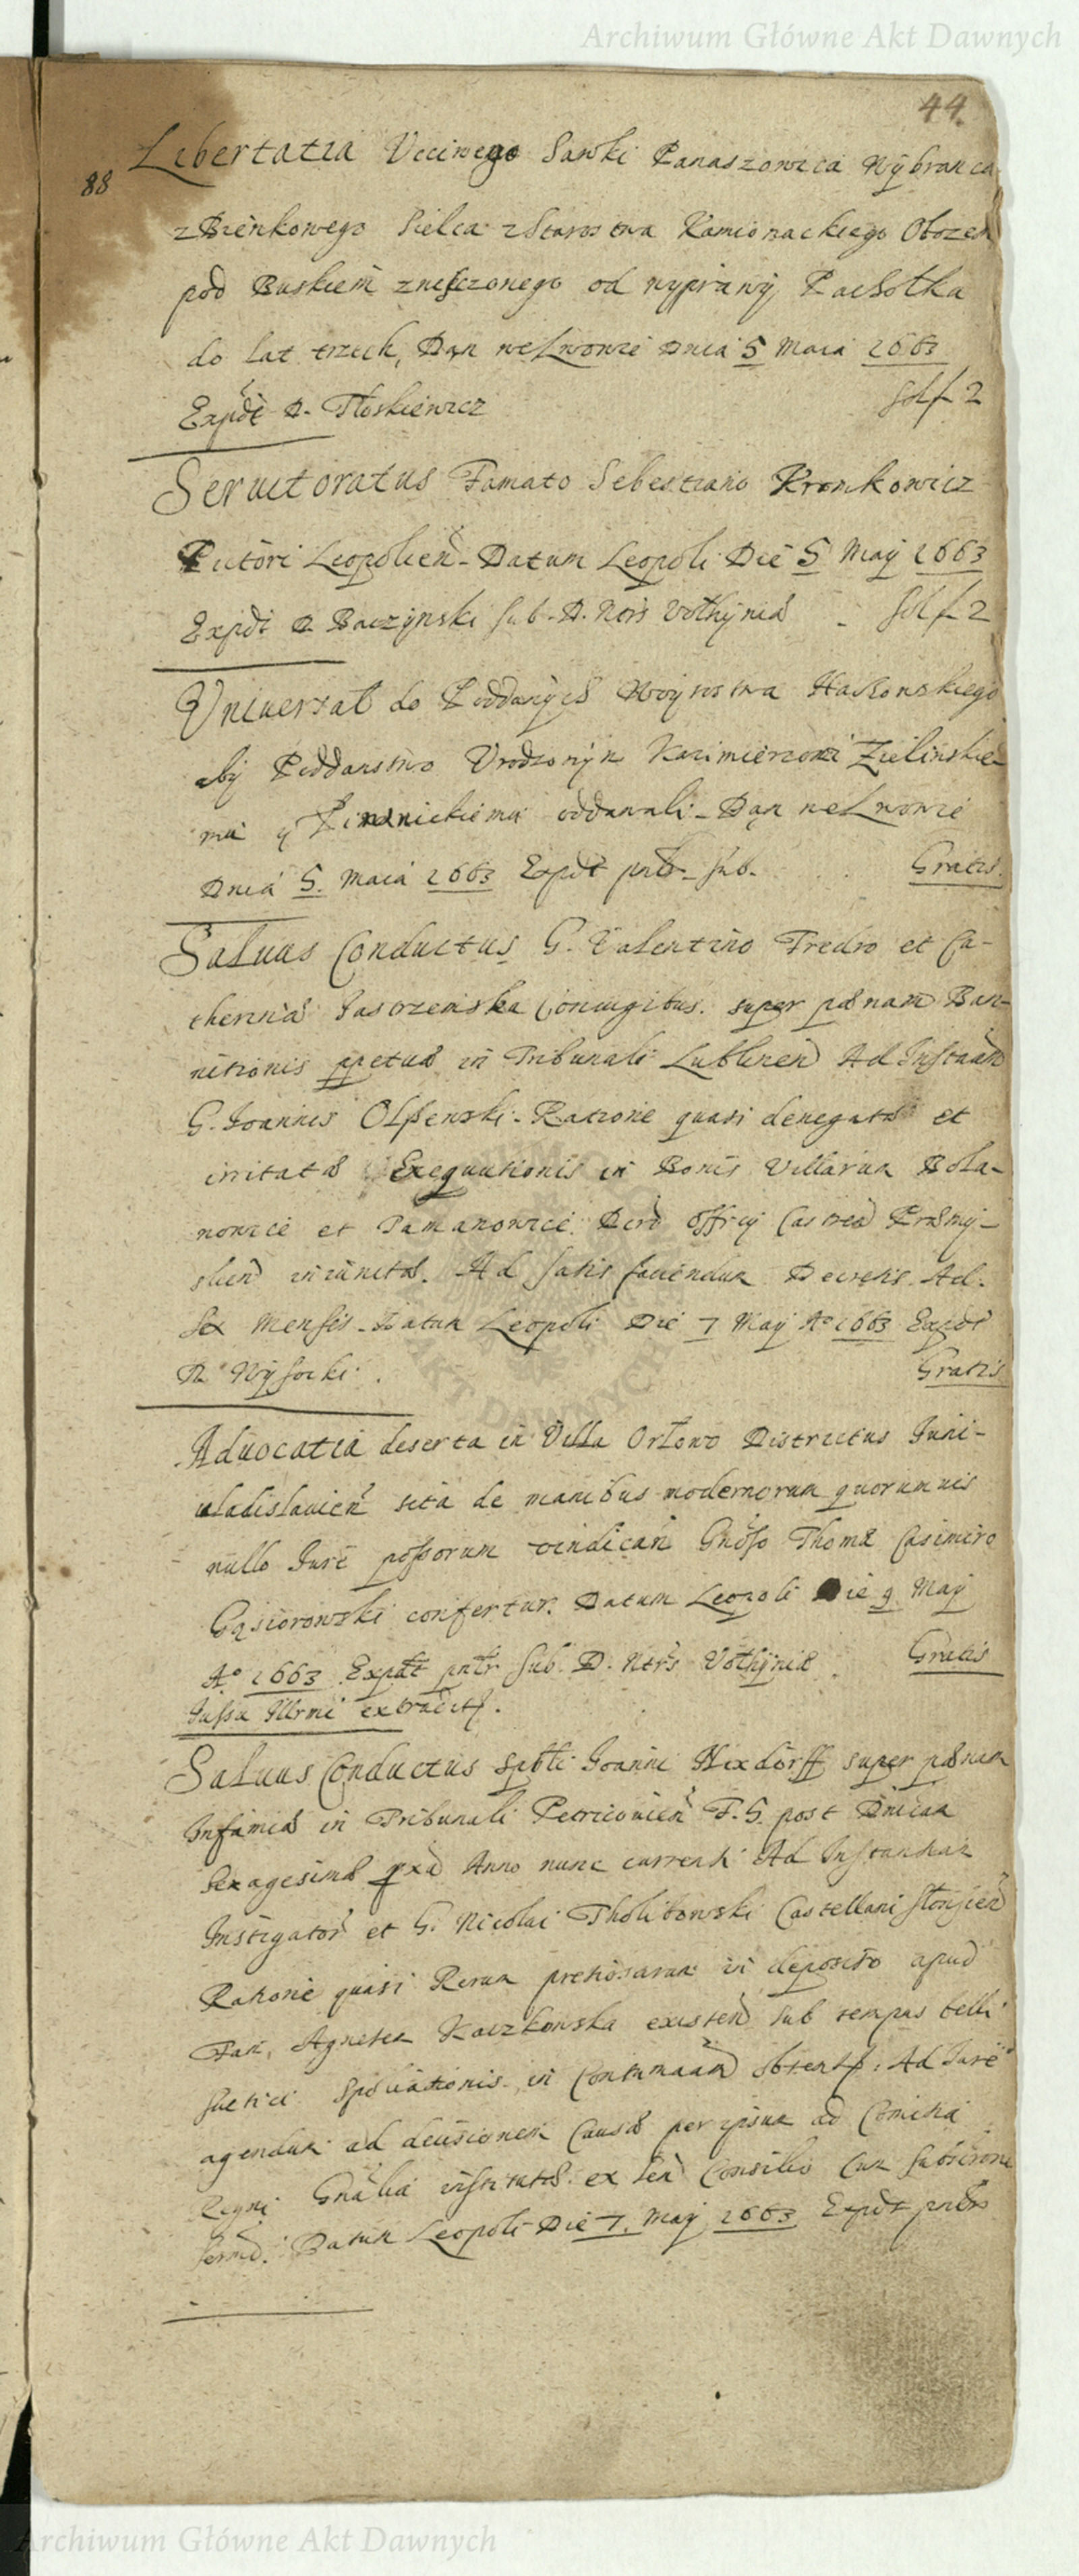 Archiwum Główne Akt Dawnych
44.
Libertatia Ucciwego Sawki Panaszowica Wÿbranca
88
z Bienkowego Sielca z Starostwa Kamionackiego Obozem
pod Buskiem zniszczonego od wyprawÿ Pachołka
do lat trzech, Dan we Lwowie Dnia 5 Maia 1663
Expdt D. Tłoskiewicz solt f 2
Seruitoratus Famato Sebestiano Kronkowicz
Pictori Leopolien. Datum Leopoli Die 5 Maÿ 1663
Expdt D. Baczÿnski sub. D. Nris Volhÿniæ solt f 2
Vniuersał do Poddanÿch Woÿtostwa
abÿ Poddanstwo Vrodzonÿm Kazimierzowi Zielinskie
mu ÿ oddawali. Dan we Lwowie
Dnia 5. Maia 1663 Expdt sub. Gratis.
Saluus Conductus G. Valentino Fredro et Ca-
therinæ Jasrzemska Coniugibus. super pænam Ban-
nitionis ppetuæ in Tribunali Lublinen Ad Instaan
G. Joannis Olszenski. Ratione quasi denegatæ et
irritatæ Exequutionis in Bonis Villarum Bola-
nowice et Pamanowice Officÿ Castren Præmÿ-
slien iniunctæ. Ad satis faciendum Decretis Ad.
Sex Mensis. Datum Leopoli Die 7 Maÿ Aº 1663 Expdt
D. Wÿsocki. Gratis
Aduocatia deserta in Villa Orłowo Districtus Juni-
uladislauien sita de manibus modernorum quorumuis
nullo Jure possorum vindican Gnoso Thomæ Casimiro
Gąsiorowski confertur. Datum Leopoli Die 9 Maÿ
Aº 1663 Expdt sub. D. Ntris Volhÿniæ. Gratis
Jussu Illrmi
Saluus Conductus Spbli Joanni Hixdorff super pænam
Infamiæ in Tribunali Petricouien F. 5. post Dnicam
Sexagesimæ Anno nunc currenti Ad Instantiam
Instigator et G. Nicolai Tholibowski Castellani
Ratione quasi Rerum pretiosarum in deposito apud
Fam. Agnetem Kaczkowska existen sub tempus belli
suetici Spoliationis in Contumaam obtent. Ad Jure
agendum ad decisionem Causæ per ipsum ad Comitia
Regni Gnalia institutæ ex Sen Consilio Cum
Datum Leopoli Die 7. Maÿ 1663 Expdt
Archiwum Główne Akt Dawnych